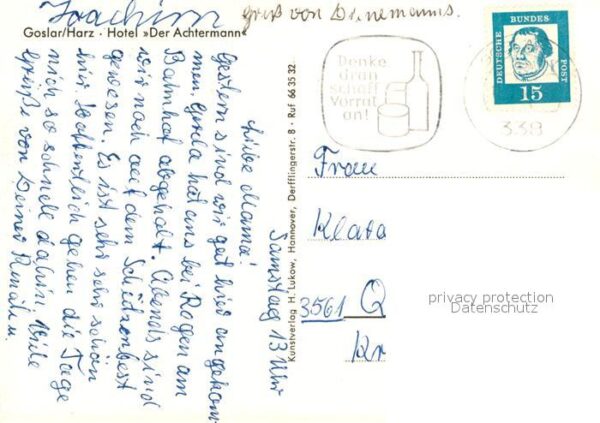 Joachim
Gruß von
Goslar/Harz · Hotel »Der Achtermann«
Samstag 13 Uhr
Liebe Mama!
Gestern sind wir gut hier angekom-
men. Gerda hat uns bei Regen am
Bahnhof abgeholt. Abends sind
wir noch auf dem Schützenfest
gewesen. Es ist sehr sehr schön
hier. Hoffentlich gehen die Tage
nicht so schnell dahin. Viele
Grüße von Deiner Renate u.
Kunstverlag H. Lukow, Hannover, Derfflingerstr. 8 · Ruf 66 35 32
Denke
dran
schaff
Vorrat
an!
DEUTSCHE
BUNDES
POST
15
338
Frau
Klara
3561 Q
Kr
privacy protection
Datenschutz